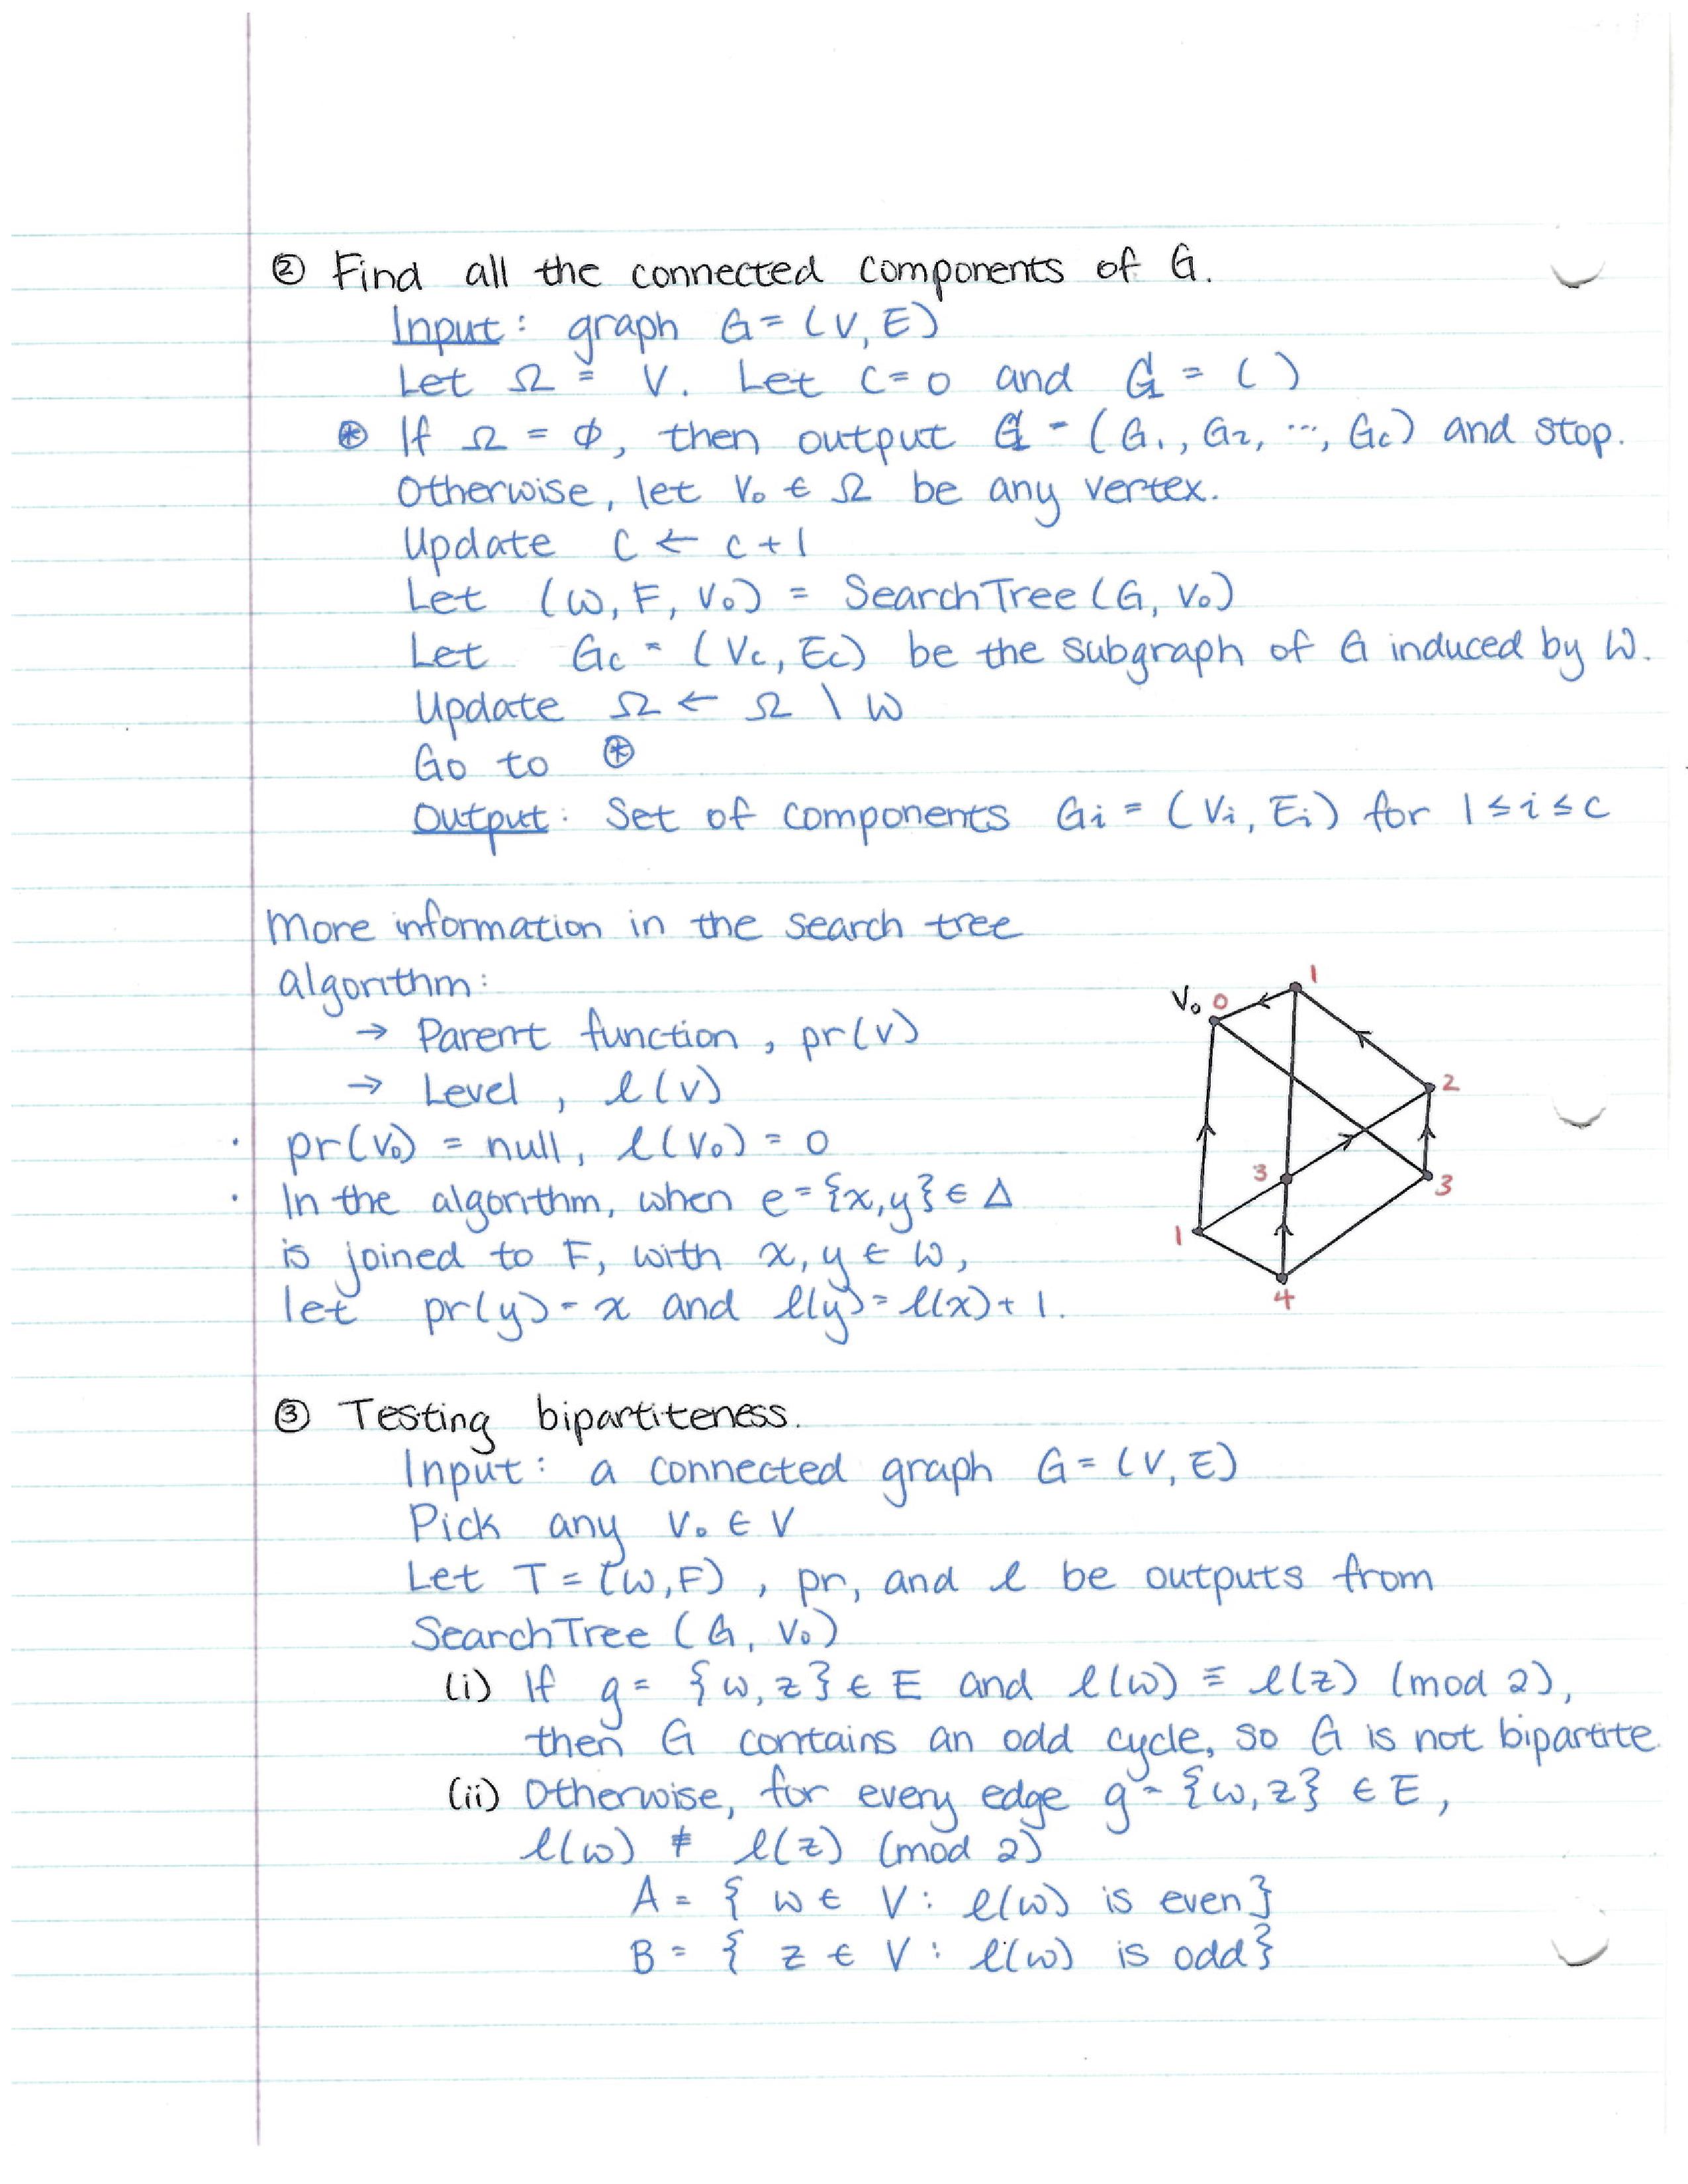 ② Find all the connected components of G.
Input: graph G = (V, E)
Let Ω = V. Let c = 0 and G = ( )
⊛ If Ω = ∅, then output G = (G₁, G₂, ..., Gc) and stop.
Otherwise, let v₀ ∈ Ω be any vertex.
Update c ← c + 1
Let (W, F, v₀) = SearchTree (G, v₀)
Let Gc = (Vc, Ec) be the subgraph of G induced by W.
Update Ω ← Ω \ W
Go to ⊛
Output: Set of components Gi = (Vi, Ei) for 1 ≤ i ≤ c
More information in the search tree
algorithm:
→ Parent function, pr(v)
→ Level, l(v)
· pr(v₀) = null, l(v₀) = 0
· In the algorithm, when e = {x, y} ∈ Δ
is joined to F, with x, y ∈ W,
let pr(y) = x and l(y) = l(x) + 1.
1
V₀ 0
2
3
3
1
4
③ Testing bipartiteness.
Input: a connected graph G = (V, E)
Pick any v₀ ∈ V
Let T = (W, F), pr, and l be outputs from
SearchTree (G, v₀)
(i) If g = {w, z} ∈ E and l(w) ≡ l(z) (mod 2),
then G contains an odd cycle, so G is not bipartite
(ii) Otherwise, for every edge g = {w, z} ∈ E,
l(w) ≢ l(z) (mod 2)
A = { w ∈ V : l(w) is even}
B = { z ∈ V : l(w) is odd}